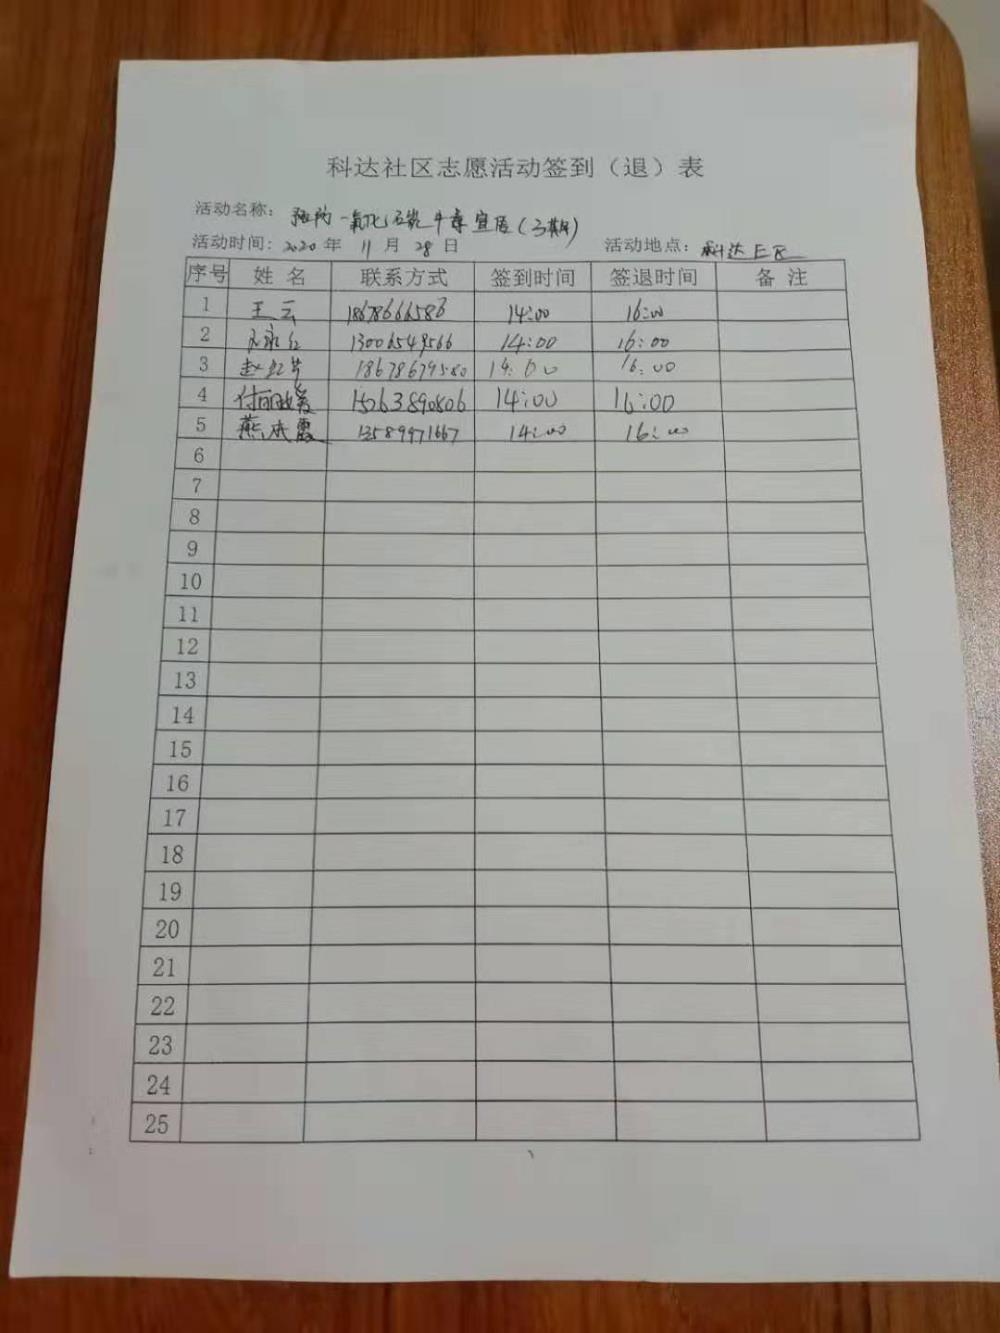 科达社区志愿活动签到（退）表
活动名称：预防一氧化碳中毒宣传（三期）
活动时间：2020年 11月 28日 活动地点：科达E区
序号 姓名 联系方式 签到时间 签退时间 备注
1 王云 18678666586 14:00 16:00
2 13006549566 14:00 16:00
3 赵 18678679580 14:00 16:00
4 付 15263890806 14:00 16:00
5 燕 霞 13589971667 14:00 16:00
6
7
8
9
10
11
12
13
14
15
16
17
18
19
20
21
22
23
24
25